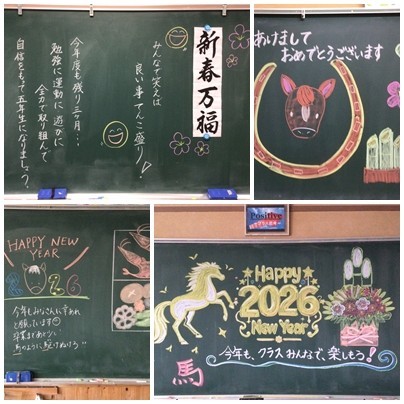 新春万福
みんなで笑えば
良い事てんこ盛り!
今年度も残り三ヶ月…
勉強に運動に遊びに
全力で取り組んで
自信をもって五年生になりましょう。
あけまして
おめでとうございます
HAPPY NEW
YEAR
2026
今年もみなさんに幸あれ
と願っています
卒業まであと少し
馬のように駆けぬけろ!!
Positive
Happy
2026
New Year
馬
今年も、クラスみんなで、楽しもう!